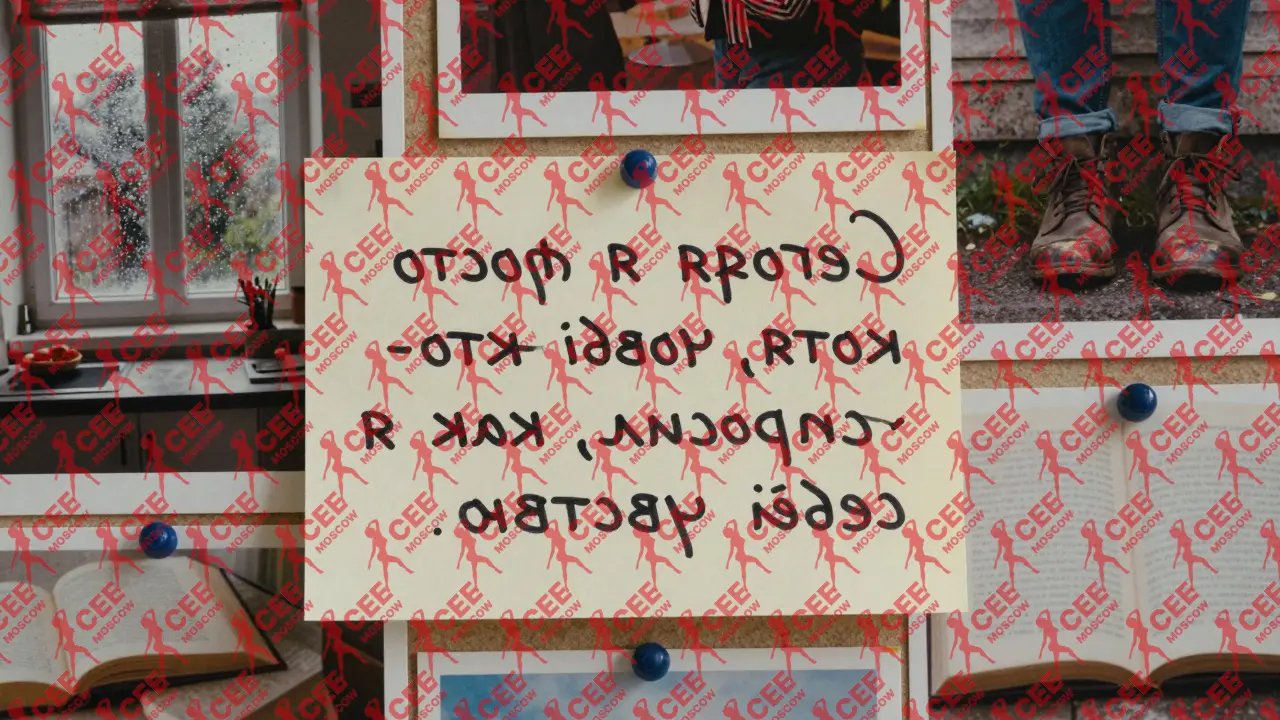 Сегодя я фросто
котя, човбi кто-
-спросил, как я
себёi увствю.
CEE
MOSCOW